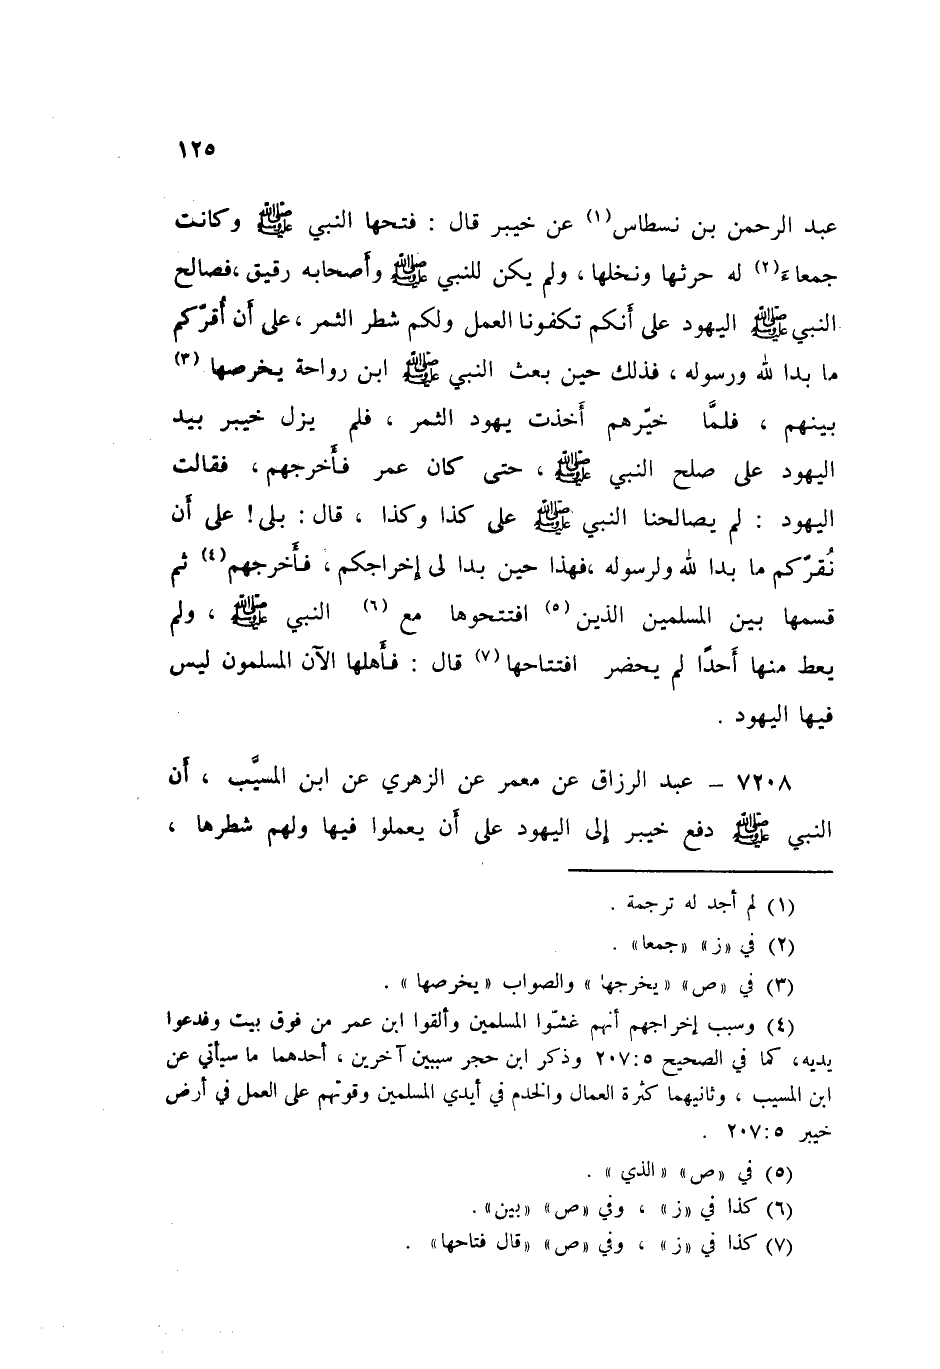 ١٢٥
عبد الرحمن بن نسطاس(١) عن خيبر قال : فتحها النبي ﷺ وكانت
جمعاءَ(٢) له حرثها ونخلها ، ولم يكن للنبي ﷺ وأصحابه رقيق ،فصالح
النبي ﷺ اليهود على أنكم تكفونا العمل ولكم شطر الثمر ،على أن أُقرّكم
ما بدا لله ورسوله ، فذلك حين بعث النبي ﷺ ابن رواحة يخرصها (٣)
بينهم ، فلمَّا خيّرهم أخذت يهود الثمر ، فلم يزل خيبر بيد
اليهود على صلح النبي ﷺ ، حتى كان عمر فأخرجهم ، فقالت
اليهود : لم يصالحنا النبي ﷺ على كذا وكذا ، قال : بلى! على أن
نُقرّكم ما بدا لله ولرسوله ،فهذا حين بدا لى إخراجكم ، فأخرجهم(٤) ثم
قسمها بين المسلمين الذين (٥) افتتحوها مع (٦) النبي ﷺ ، ولم
يعط منها أحدًا لم يحضر افتتاحها(٧) قال : فأهلها الآن المسلمون ليس
فيها اليهود .
٧٢٠٨ – عبد الرزاق عن معمر عن الزهري عن ابن المسيَّب ، أن
النبي ﷺ دفع خيبر إلى اليهود على أن يعملوا فيها ولهم شطرها ،
(١) لم أجد له ترجمة .
(٢) في «ز» «جمعا» .
(٣) في «ص» «يخرجها» والصواب «يخرصها» .
(٤) وسبب إخراجهم أنهم غشّوا المسلمين وألقوا ابن عمر من فوق بيت وفدعوا
يديه، كما في الصحيح ٢٠٧:٥ وذكر ابن حجر سببين آخرين ، أحدهما ما سيأتي عن
ابن المسيب ، وثانيهما كثرة العمال والخدم في أيدي المسلمين وقوتهم على العمل في أرض
خيبر ٢٠٧:٥ .
(٥) في «ص» «الذي» .
(٦) كذا في «ز» ، وفي «ص» «بين» .
(٧) كذا في «ز» ، وفي «ص» «قال فتاحها» .